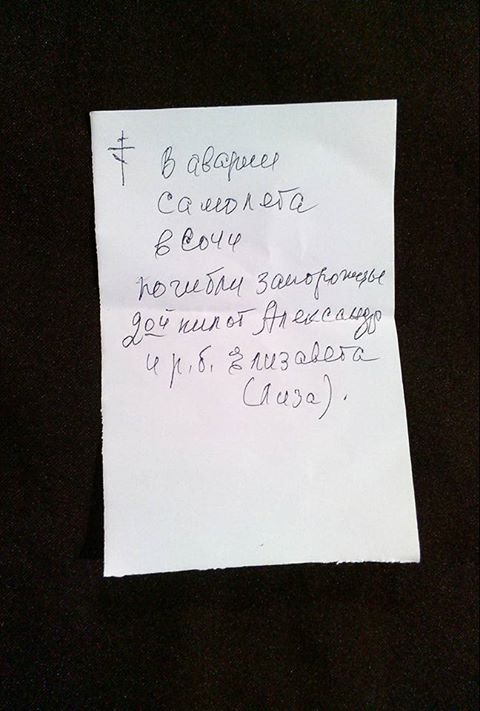 В аварии
самолета
в Сочи
погибли запорожцы
2ой пилот Александр
и р.б. Елизавета
(Лиза).